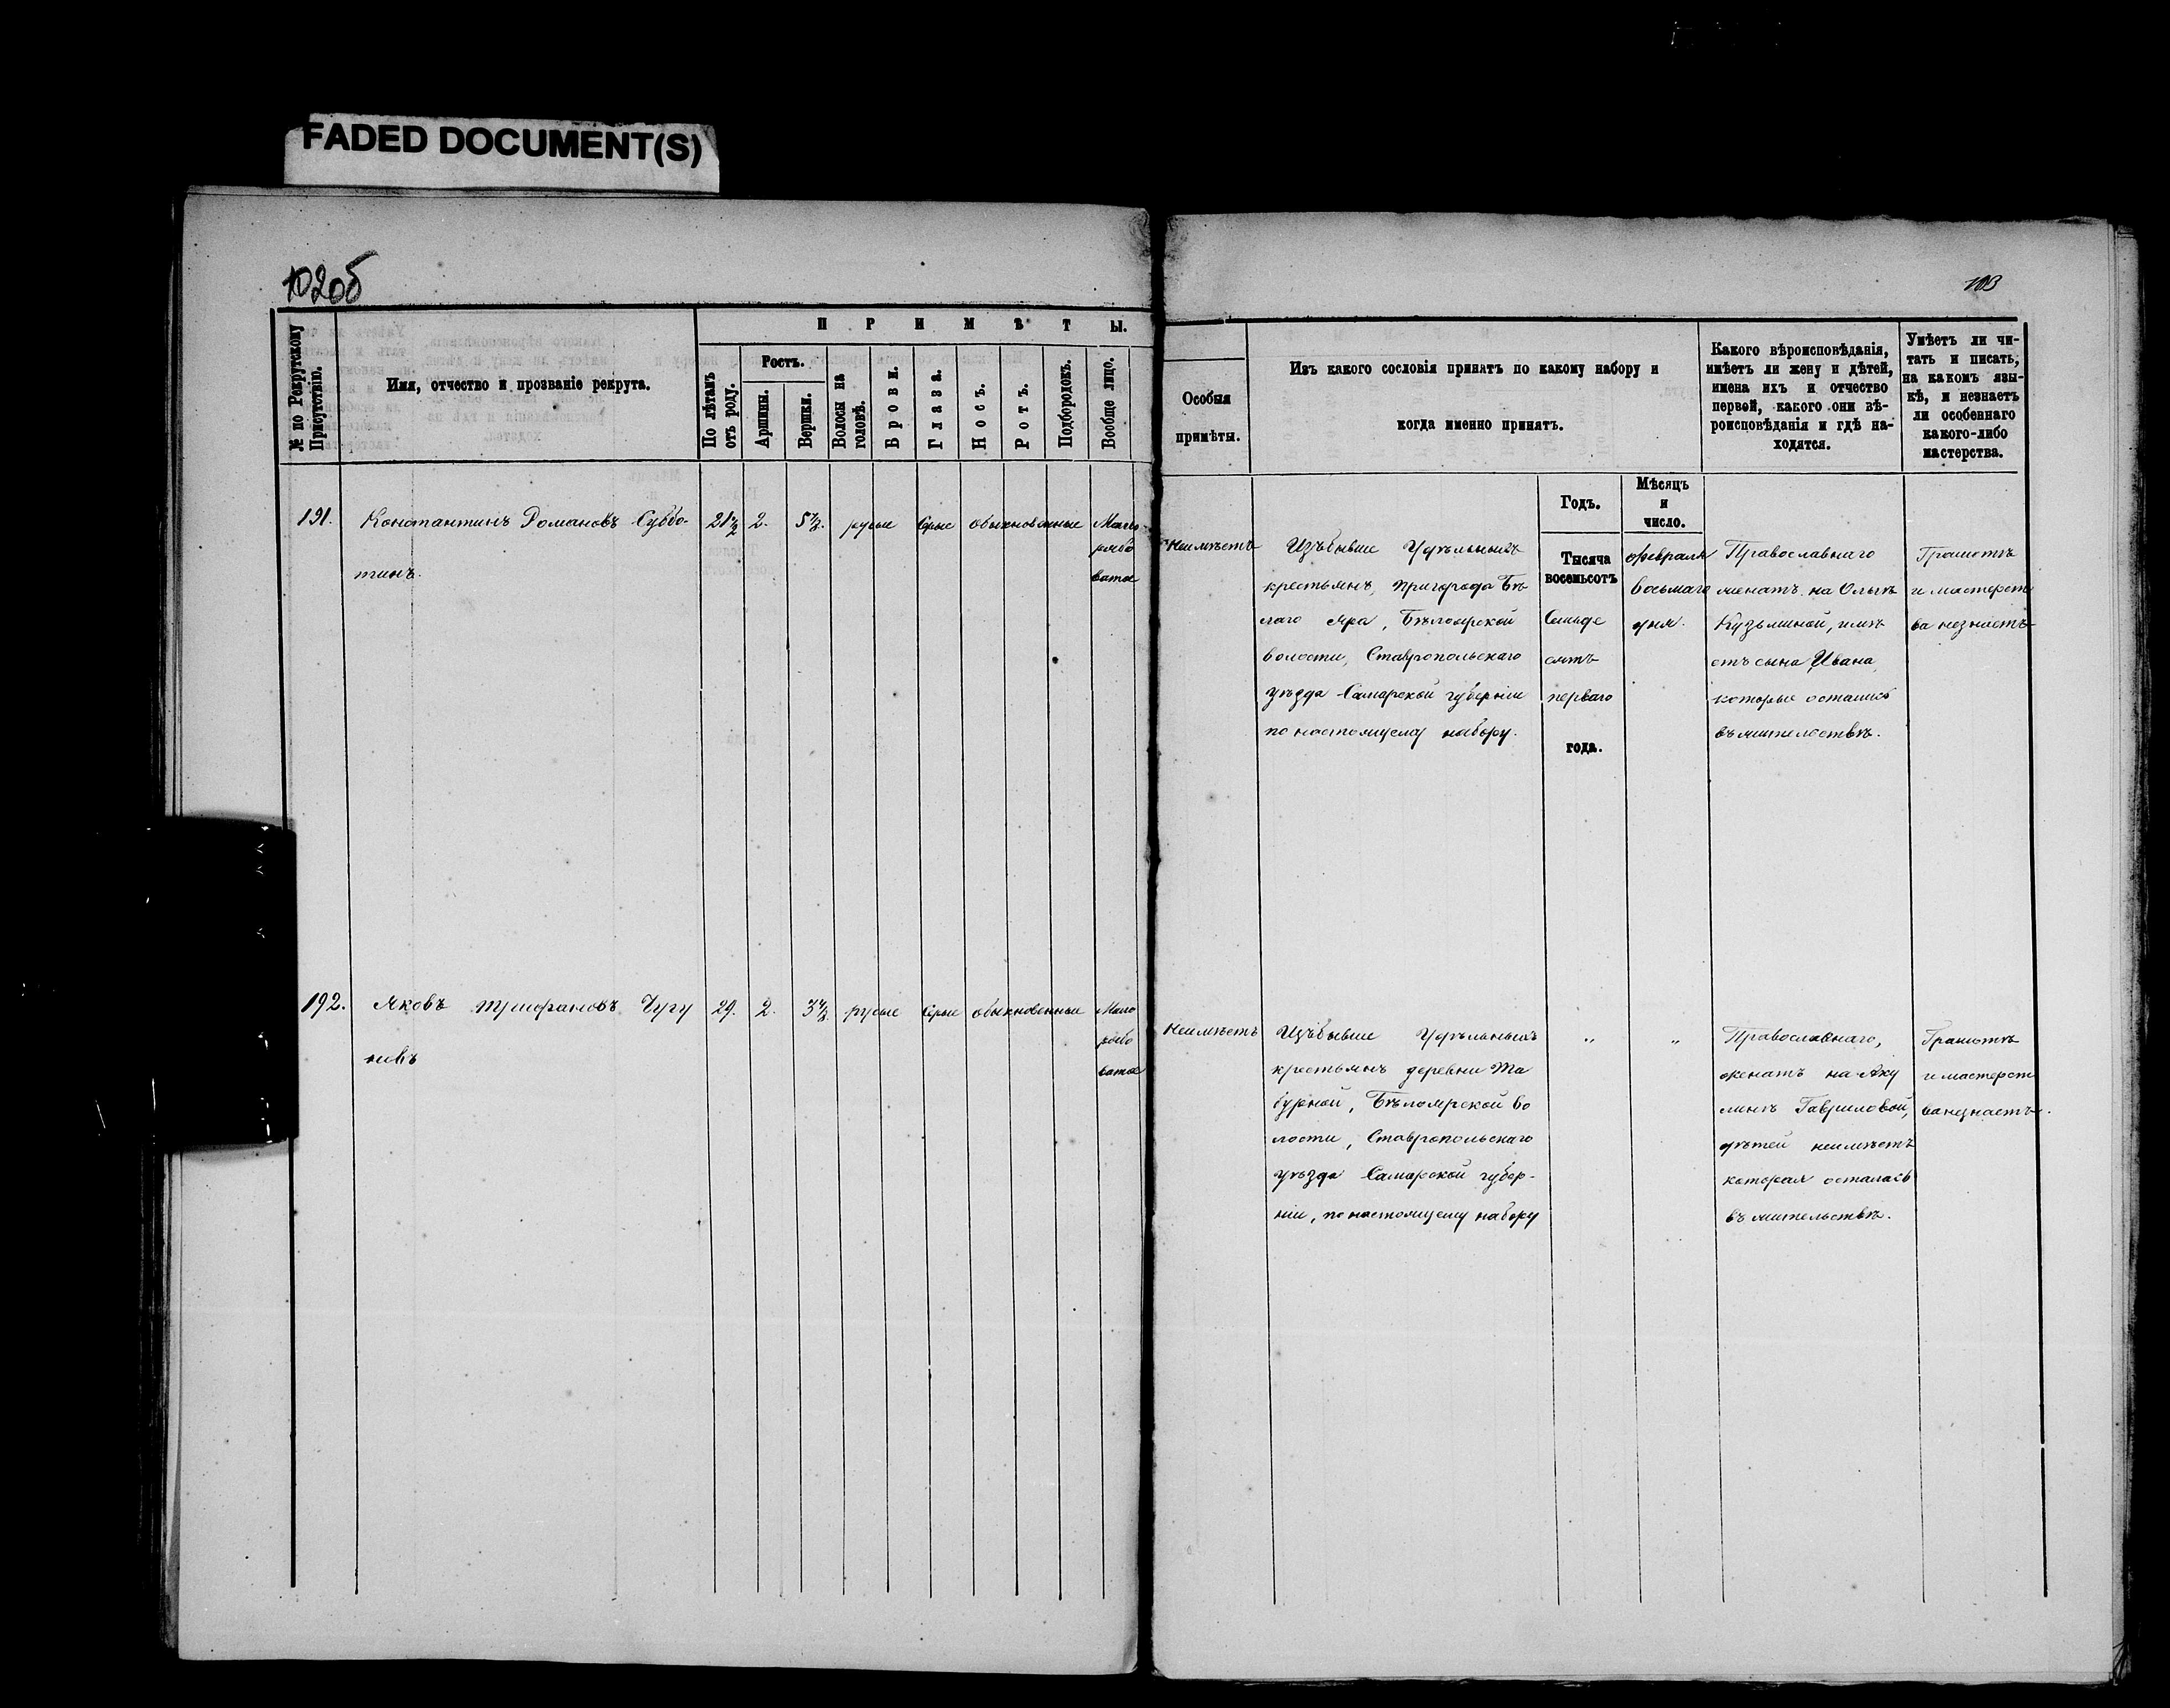 FADED DOCUMENT(S)
102об
103
№ по Рекрутскому Присутствію.
Имя, отчество и прозваніе рекрута.
ПРИМѢТЫ.
По лѣтамъ отъ роду.
Ростъ.
Аршины.
Вершки.
Волосы на головѣ.
Брови.
Глаза.
Носъ.
Ротъ.
Подбородокъ.
Вообще лицо.
Особыя
примѣты.
Изъ какого сословія принятъ по какому набору и
когда именно принятъ.
Какого вѣроисповѣданія,
имѣетъ ли жену и дѣтей,
имена ихъ и отчество
первой, какого они вѣ-
роисповѣданія и гдѣ на-
ходятся.
Умѣетъ ли чи-
тать и писать,
на какомъ язы-
кѣ, и незнаетъ
ли особеннаго
какого-либо
мастерства.
Годъ.
Мѣсяцъ
и
число.
191. Константинъ Романовъ Суббо-
тинъ.
21½ 2. 5½. русые сѣрые обыкновенные Мало-
рябо
ватое
Неимѣетъ
Изъ бывше Удѣльныхъ
крестьянъ, пригорода Бѣ
лаго Яра, Бѣлоярской
волости, Ставропольскаго
уѣзда Самарской губерніи
по настоящему набору.
Тысяча
восемьсотъ
Семьде
сятъ
перваго
года.
февраля
восьмаго
дня.
Православнаго
женатъ на Ольгѣ
Кузьминой, имѣ
етъ сына Ивана,
которые остались
въ жительствѣ.
Грамотѣ
и мастерст
ва незнаетъ
192. Яковъ Чугу
новъ
29. 2. 3½. русые сѣрые обыкновенные Мало
рябо
ватое
Неимѣетъ
Изъ бывше Удѣльныхъ
крестьянъ деревни Та
бурной, Бѣлоярской во
лости, Ставропольскаго
уѣзда Самарской губер-
ніи, по настоящему набору
" "
Православнаго,
женатъ на Аку
линѣ Гавриловой,
дѣтей неимѣетъ
которая осталась
въ жительствѣ.
Грамотѣ
и мастерст
ва незнаетъ.